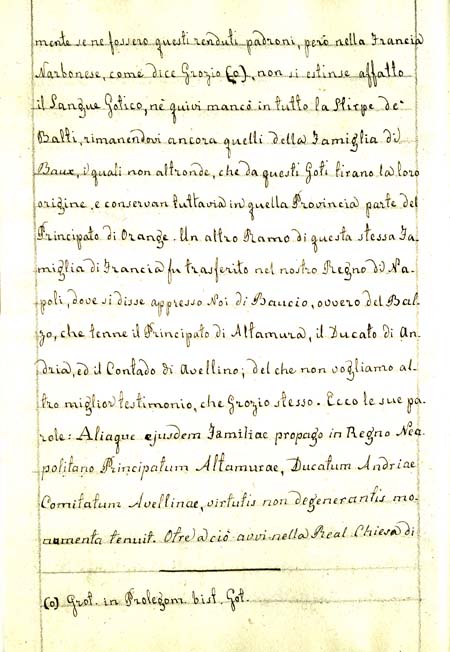 mente se ne fossero questi renduti padroni, però nella Francia
Narbonese, come dice Grozio (o), non si estinse affatto
il Sangue Gotico, nè quivi mancò in tutto la Stirpe de'
Balti, rimanendovi ancora quelli della Famiglia di
Baux, i quali non altronde, che da questi Goti tirano la loro
origine, e conservan tuttavia in quella Provincia parte del
Principato di Orange. Un altro Ramo di questa stessa Fa-
miglia di Francia fu trasferito nel nostro Regno di Na-
poli, dove si disse appresso Noi di Baucio, ovvero del Bal-
zo, che tenne il Principato di Altamura, il Ducato di An-
dria, ed il Contado di Avellino; del che non vogliamo al-
tro miglior testimonio, che Grozio stesso. Ecco le sue pa-
role: Aliaque ejusdem Familiae propago in Regno Nea-
politano Principatum Altamurae, Ducatum Andriae
Comitatum Avellinae, virtutis non degenerantis mo-
numenta tenuit. Otre a ciò avvi nella Real Chiesa di
(o) Grot. in Prolegom hist. Got.